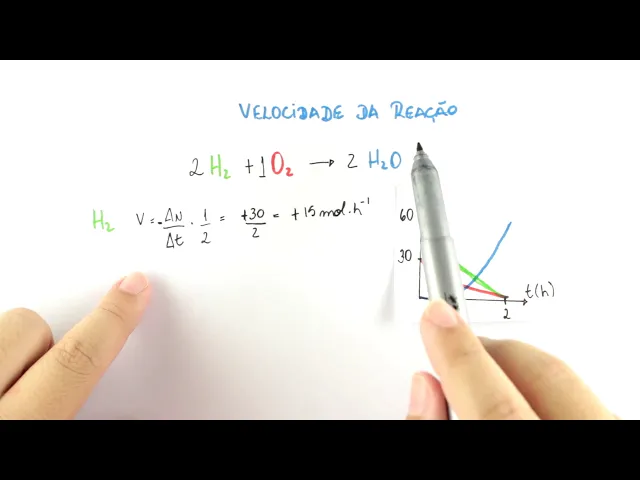 VELOCIDADE DA REAÇÃO
2 H₂ + 1 O₂ → 2 H₂O
H₂ V = -ΔN/Δt · 1/2 = +30/2 = +15 mol·h⁻¹
60
30
t(h)
2